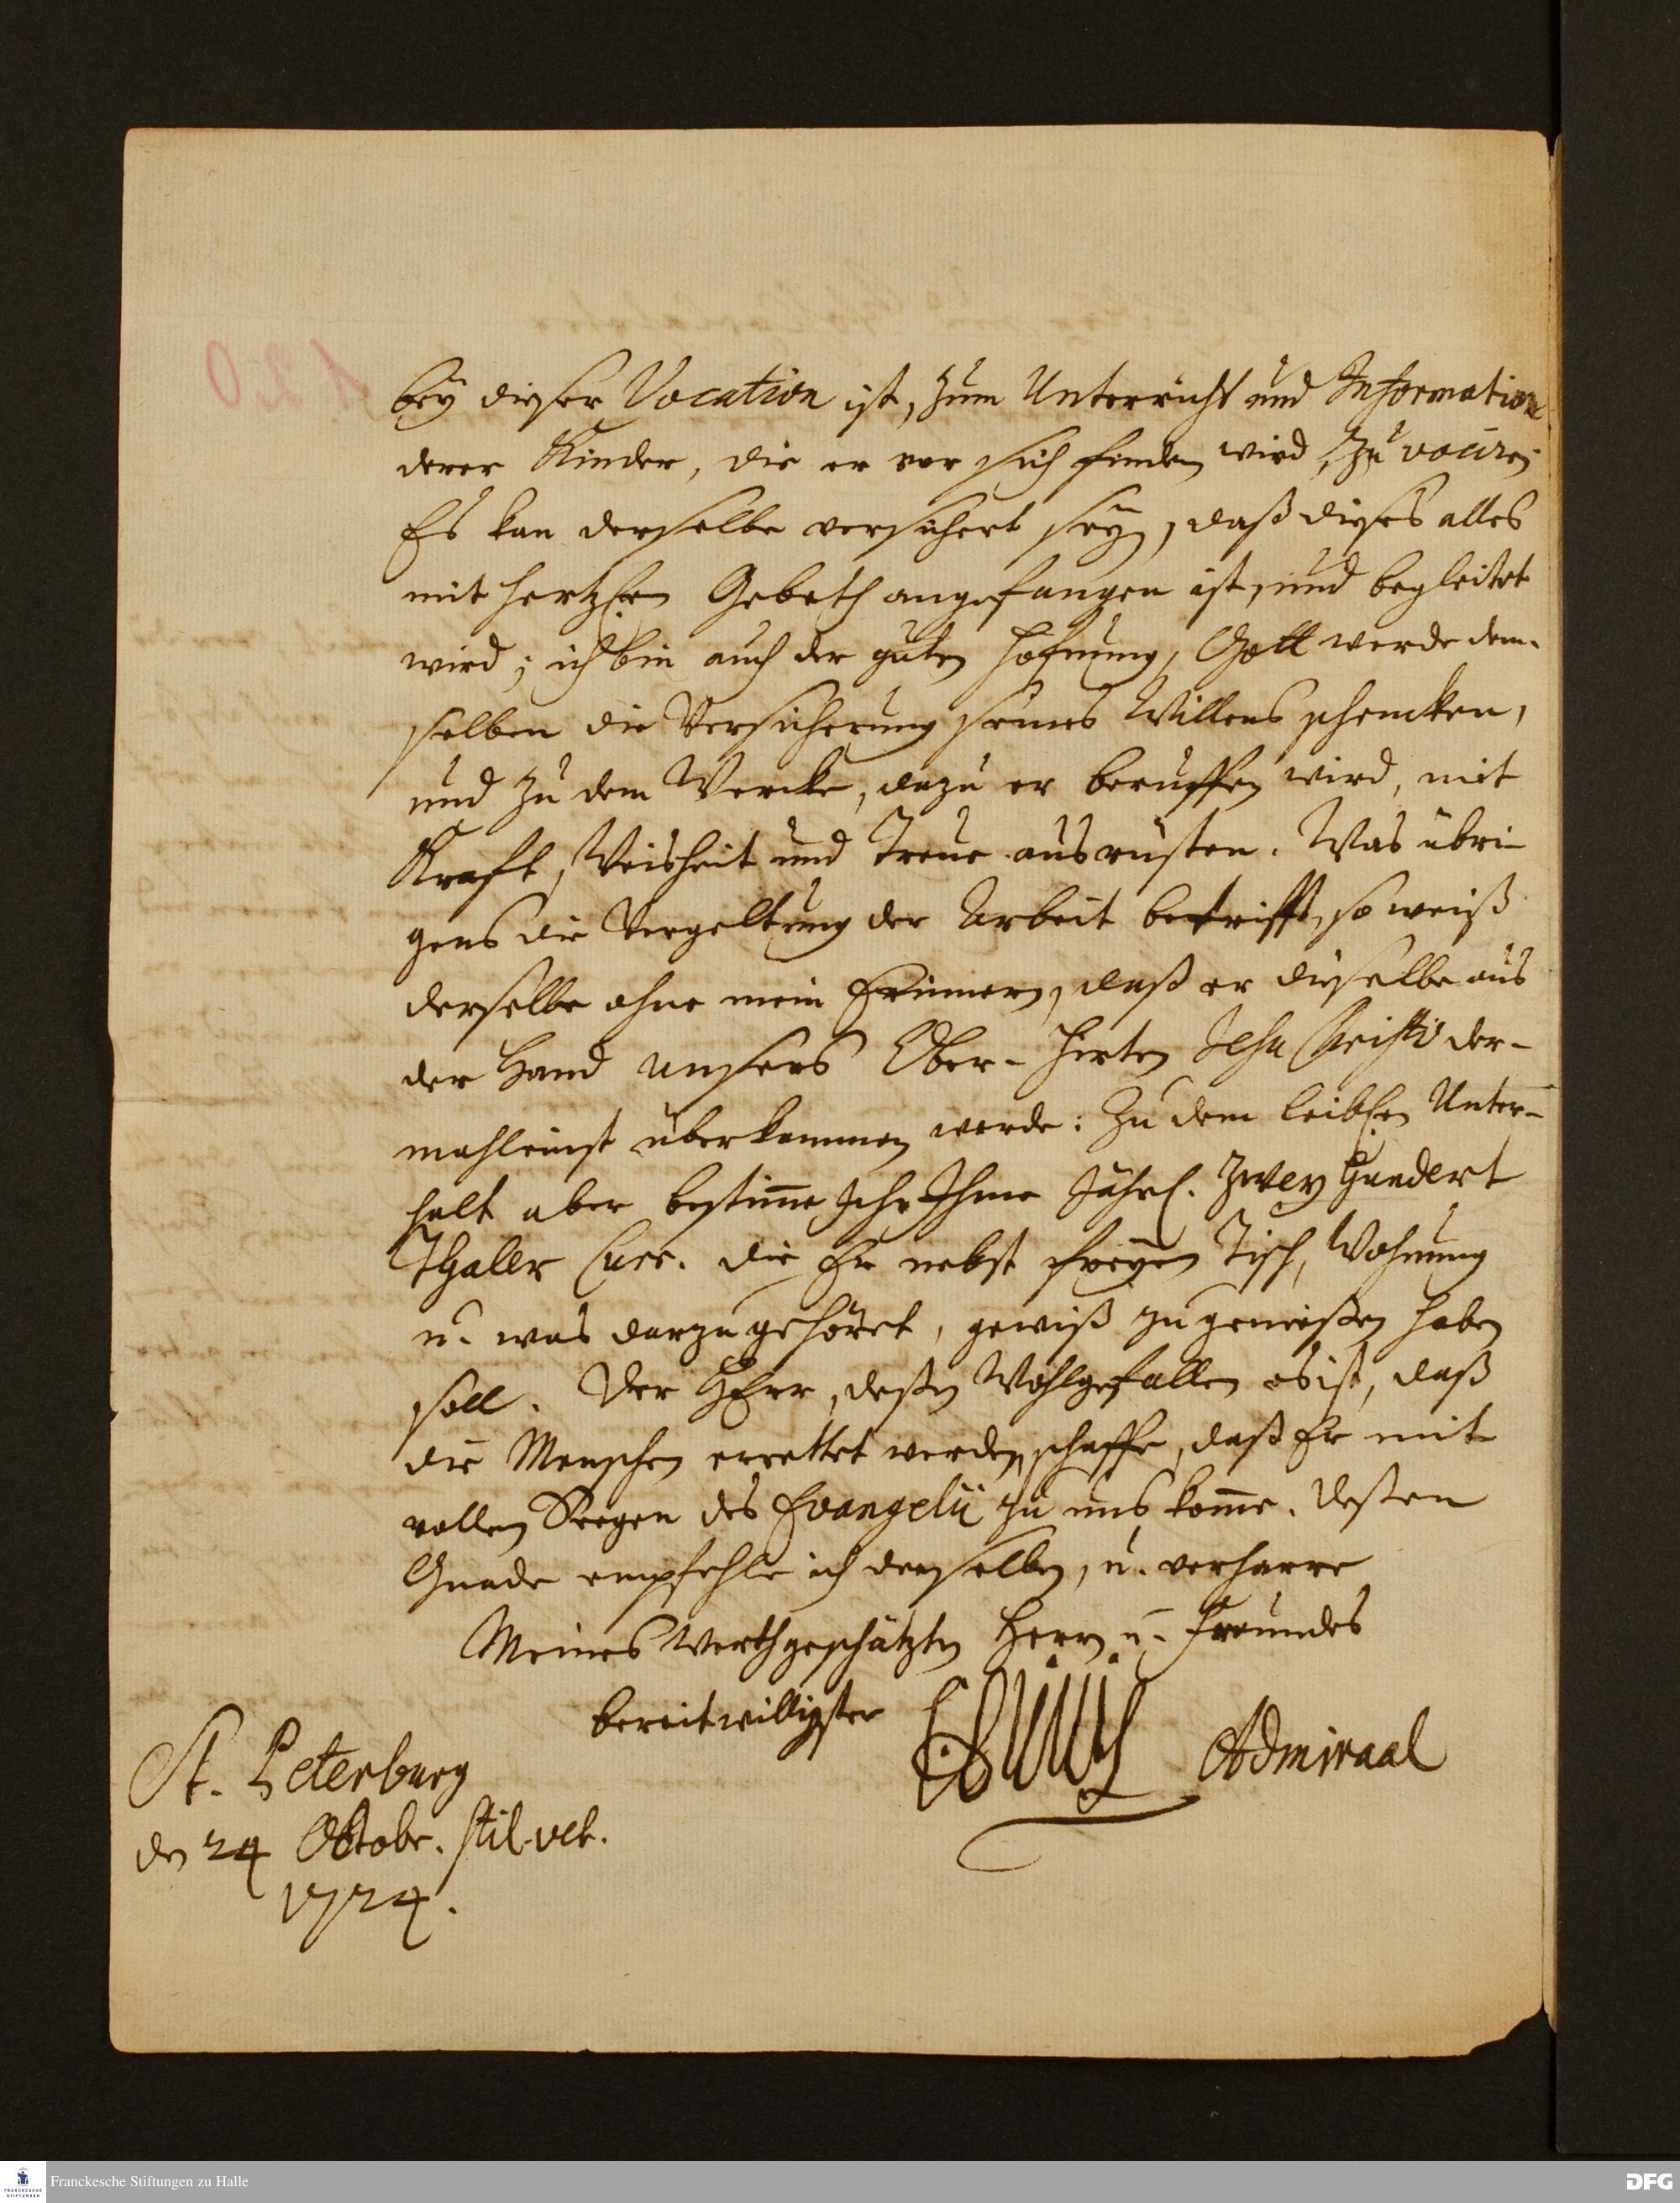 bey dieser Vocation ist, zum Unterricht und Information
derer Kinder, die er vor sich finden wird, zu vociren
Es kan derselbe versichert seyn, daß dieses alles
mit hertzlichen Gebeth angefangen ist, und begleitet
wird; ich bin auch der guten Hofnung, Gott werde dem-
selben die Versicherung seines Willens schencken,
und zu dem Wercke, dazu er beruffen wird, mit
Krafft, Weisheit und Treue ausrüsten. Was übri-
gens die Vergeltung der Arbeit betrifft, so weiß
derselbe ohne mein Erinnern, daß er dieselbe aus
der Hand unsers Ober-Hirten Jesu Christi der-
mahleinst überkommen werde: Zu dem leiblichen Unter-
halt aber bestim̅e Ich Ihme Jährl. Zwey Hundert
Thaler Curr. die Er nebst freyen Tisch, Wohnung
u. was darzu gehöret, gewiß zu genießen haben
soll. Der HErr, deßen Wohlgefallen es ist, daß
die Menschen errettet werden, schaffe, daß Er mit
vollen Seegen des Evangelii zu uns kom̅e. Deßen
Gnade empfehle ich denselben, u. verharre
Meines Werthgeschätzten Herrn u. Freundes
bereitwilligster
Admiraal
St. Peterburg
den 24 Octobr. stil. vet.
1724.
120
Franckesche Stiftungen zu Halle
FRANCKESCHE
STIFTUNGEN
DFG